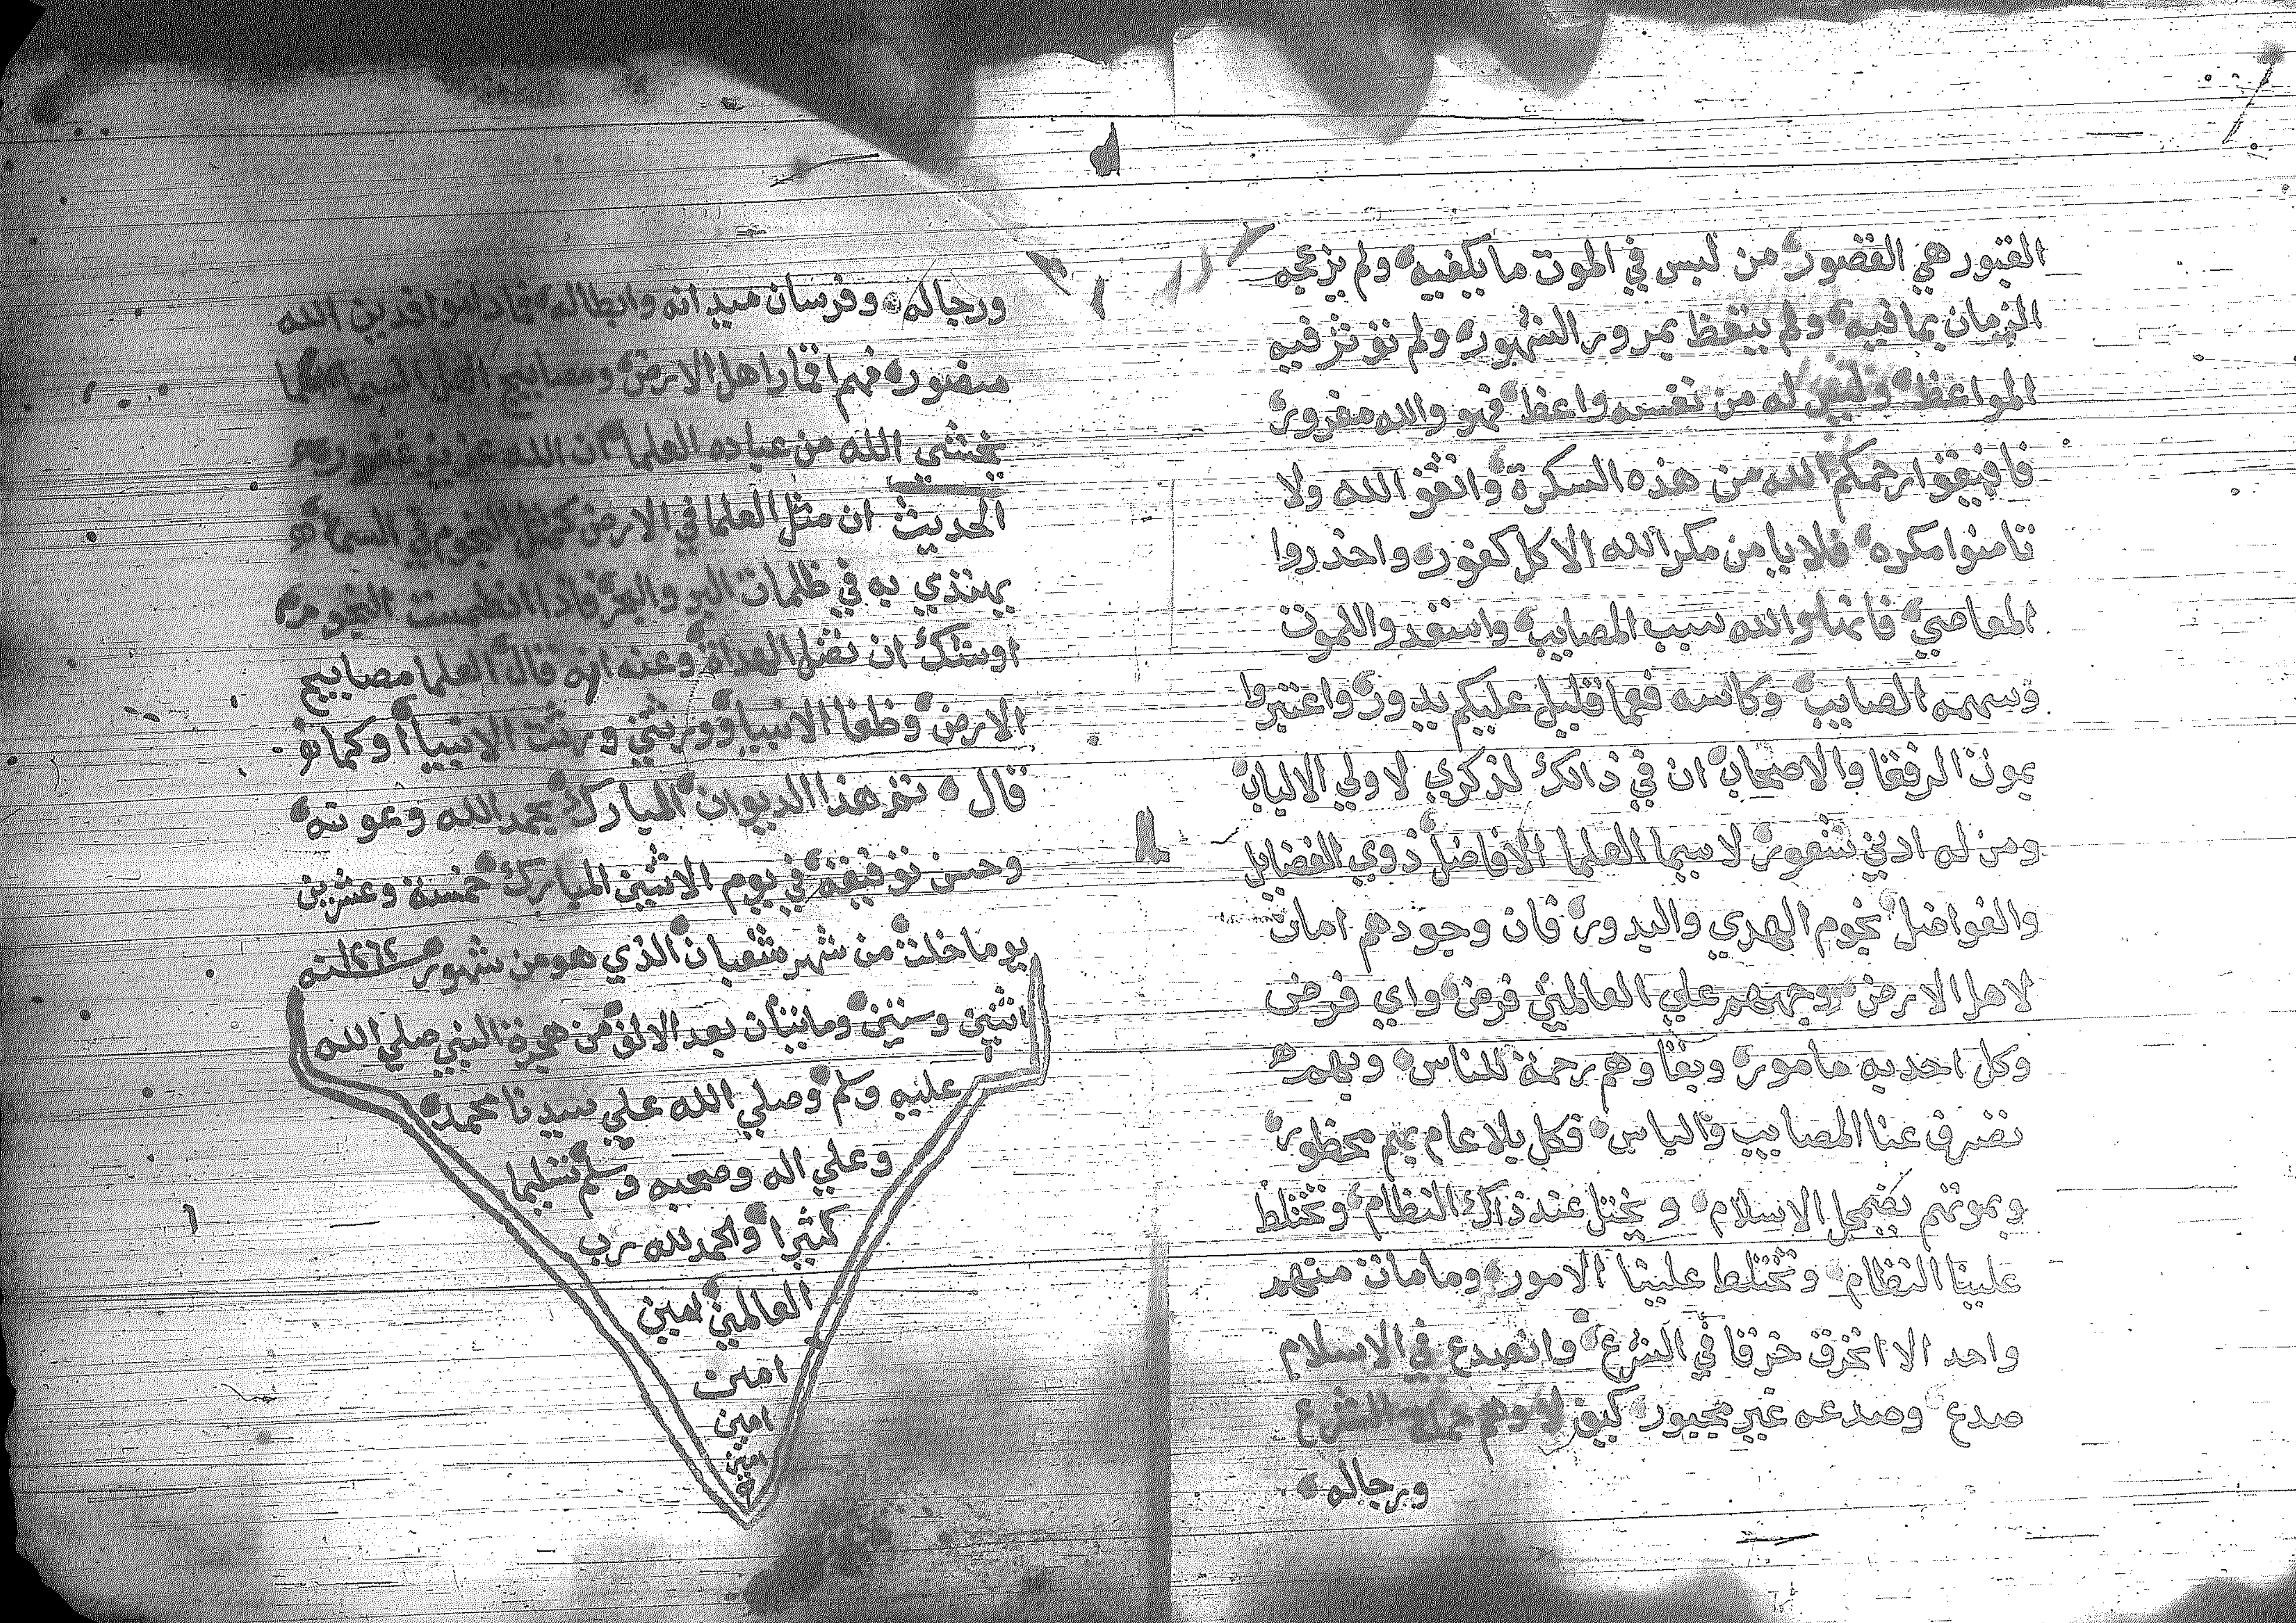 القبور هي القصور من ليس في الموت ما يكفيه ولم يزعجه
الزمان بما فيه ولم يتعظ بمرور الشهور ولم توثر فيه
المواعظ وليس له من نفسه واعظ فهو والله مغرور
فافيقوا رحمكم الله من هذه السكرة واتقو الله ولا
تامنوا مكره فلا يامن مكر الله الا كل كفور واحذروا
المعاصي فانها والله سبب المصايب واستعدوا للموت
وسهمه الصايب وكاسه فعما قليل عليكم يدور واعتبروا
بموت الرفقا والاصحاب ان في ذالك لذكري لاولي الالباب
ومن له ادني شعور لا سيما العلما الافاضل ذوي الفضايل
والفواضل نجوم الهدي والبدور فان وجودهم امان
لاهل الارض وحبهم علي العالمين فرض واي فرض
وكل احد به مامور وبقاوهم رحمة للناس وبهم
تصرف عنا المصايب والباس فكل بلا عام بهم محظور
وبموتهم يضمحل الاسلام ويختل عند ذاك النظام وتختلط
علينا النظام وتختلط علينا الامور وما مات منهم
واحد الا انخرق خرقا في الشرع وانصدع في الاسلام
صدع وصدعه غير مجبور كيف لا وهم حماة الشرع
ورجاله
ورجاله وفرسان ميدانه وابطاله فما داموا فدين الله
منصور فهم اقمار اهل الارض ومصابيح اهل السما انما
يخشي الله من عباده العلما ان الله عزيز غفور
الحديث ان مثل العلما في الارض كمثل النجوم في السما
يهتدي به في ظلمات البر والبحر فاذا انطمست النجوم
اوشك ان تضل الهداة وعنه انه قال العلما مصابيح
الارض وخلفا الانبيا وورثتي وورثت الانبيا او كما
قال تم هذا الديوان المبارك بحمد الله وعونه
وحسن توفيقه في يوم الاثنين المبارك خمسة وعشرين
يوما خلت من شهر شعبان الذي هو من شهور سنة ١٢٦٢
اثنين وستين ومايتان بعد الالف من هجرة النبي صلي الله
عليه وسلم وصلي الله علي سيدنا محمد
وعلي اله وصحبه وسلم تسليما
كثيرا والحمد لله رب
العالمين امين
امين
امين
امين